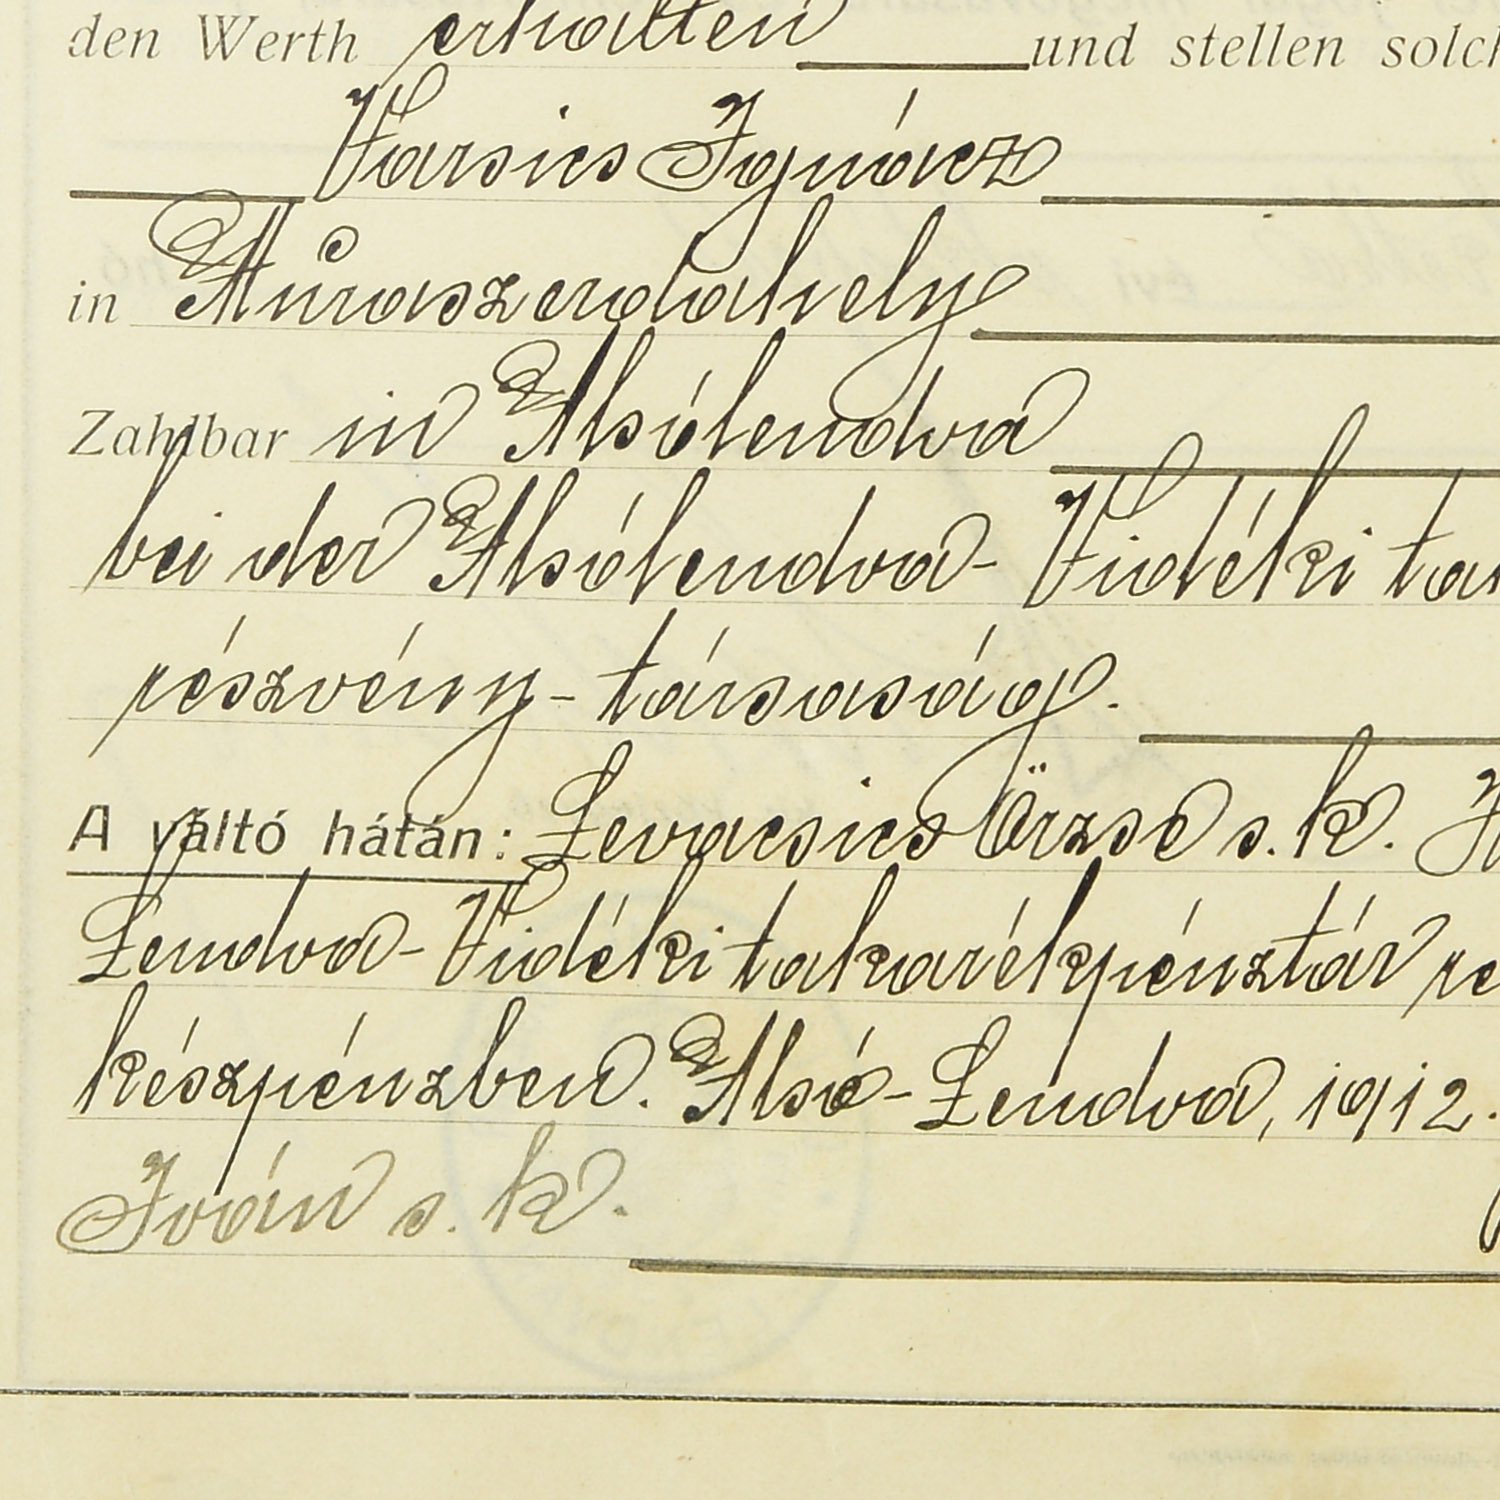 den Werth erhalten und stellen solch
Varsics Ignácz
in Muraszerdahely
Zahlbar in Alsólendva
bei der Alsólendva- Vidéki tak
részvény-társaság.
A váltó hátán: Levacsics Örzse s. k.
Lendva- Vidéki takarékpénztár ré
készpénzben. Alsó-Lendva, 1912.
Iván s. k.